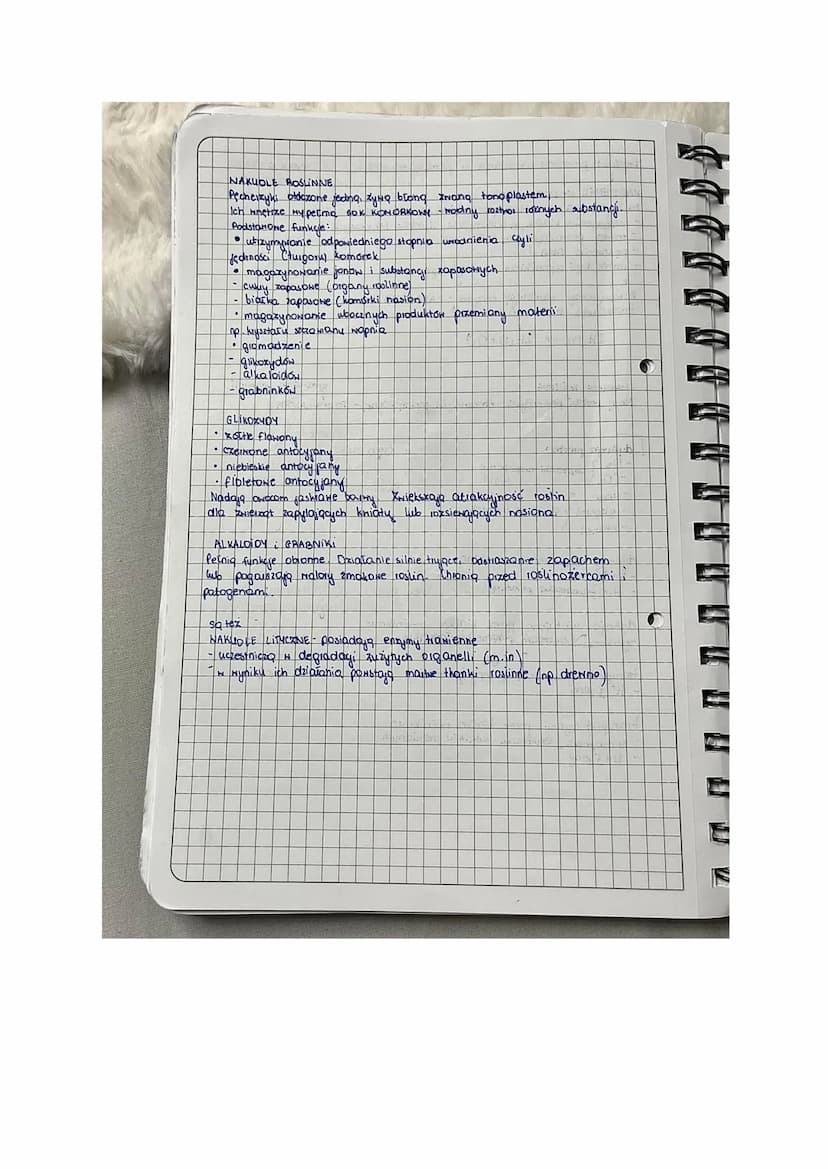 WAKUOLE ROŚLINNE
Pęcherzyki otoczone jedną, żywą błoną zwaną tonoplastem,
Ich wnętrze wypełnia SOK KOMÓRKOWY - wodny roztwór różnych substancji.
Podstawowe funkcje:
• utrzymywanie odpowiedniego stopnia uwodnienia czyli
jędrności (turgoru) komórek
• magazynowanie jonów i substancji zapasowych
- cukry zapasowe (organy roślinne)
- białka zapasowe (komórki nasion)
• magazynowanie ubocznych produktów przemiany materii
np. kryształu szczawianu wapnia
• gromadzenie
- glikozydów
- alkaloidów
- grabników
GLIKOZYDY
• żółte flawony
• czerwone antocyjany
• niebieskie antocyjany
• fioletowe antocyjany
Nadają owocom jaskrawe barwy. Zwiększają atrakcyjność roślin
dla zwierząt zapylających kwiaty lub rozsiewających nasiona.
ALKALOIDY i GRABNIKI
Pełnią funkcje obronne. Działanie silnie trujące, odstraszanie zapachem
lub pogarszają walory smakowe roślin. Chronią przed roślinożercami i
patogenami.
są też
WAKUOLE LITYCZNE - posiadają enzymy trawienne
- uczestniczą w degradacji zużytych organelli (m.in)
- w wyniku ich działania powstają martwe tkanki roślinne (np. drewno)